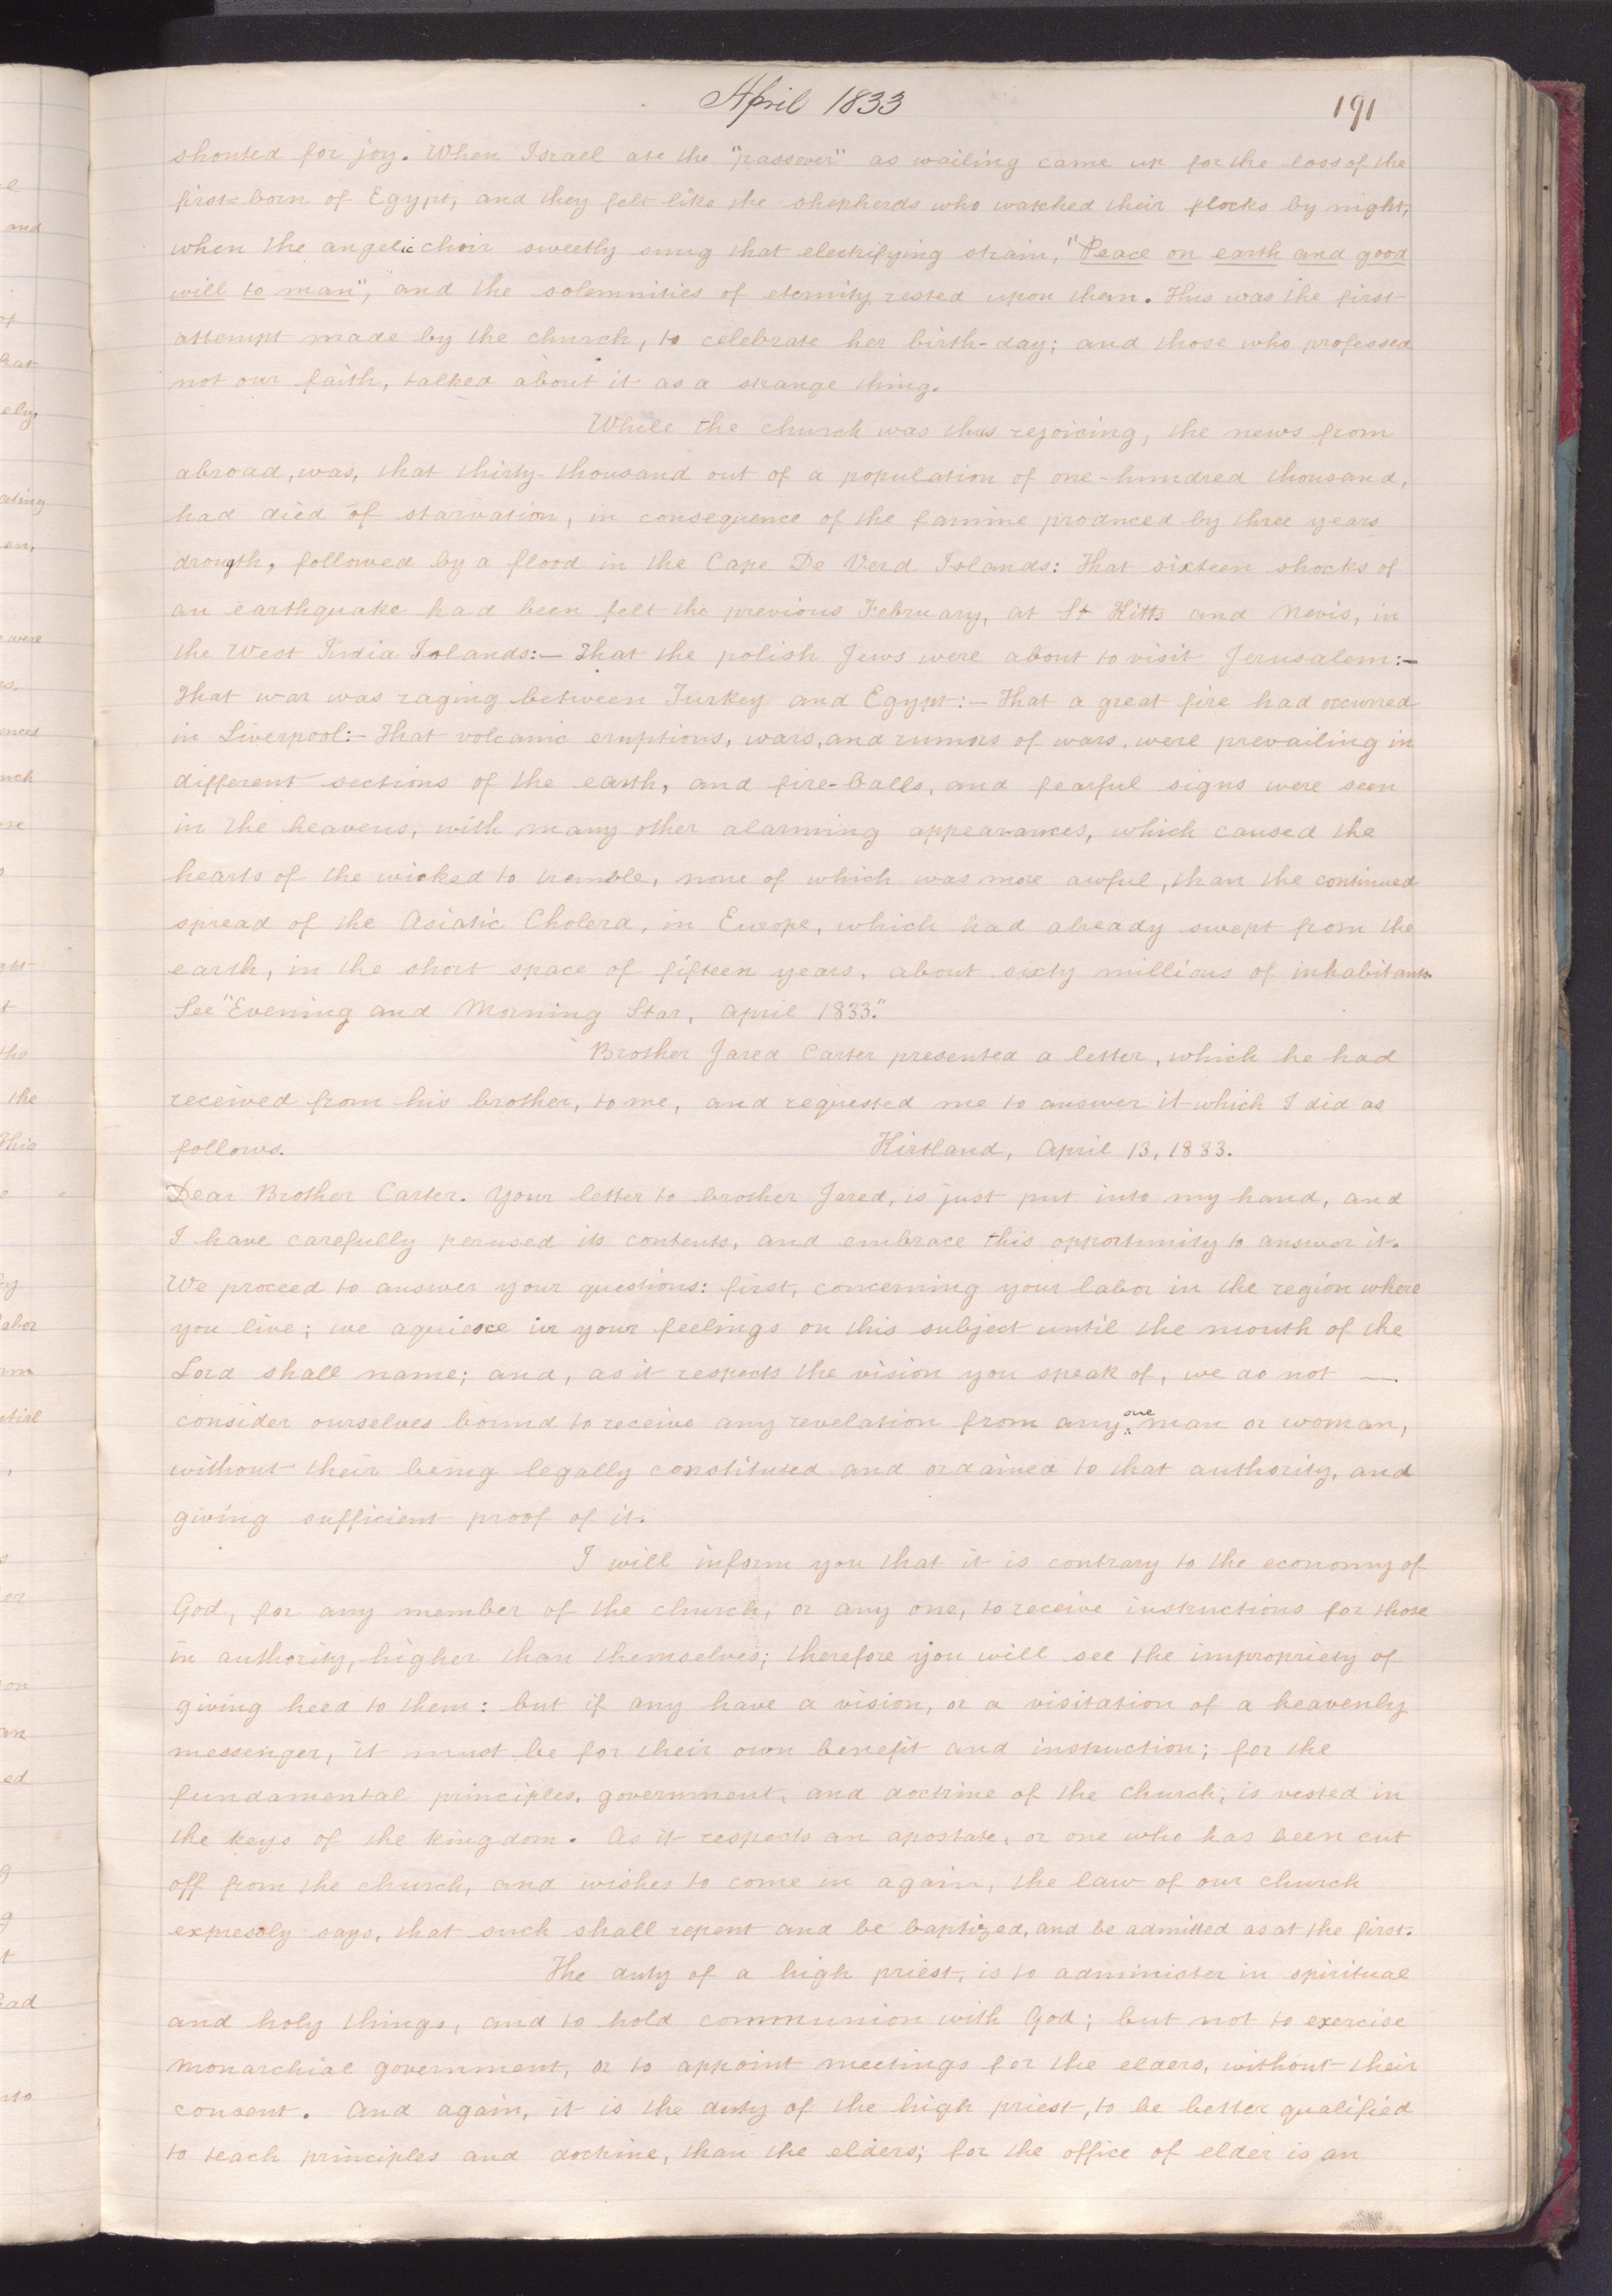 April 1833
191
shouted for joy. When Israel ate the "passover" as wailing came up for the loss of the
first=born of Egypt, and they felt like the shepherds who watched their flocks by night,
when the angelic choir sweetly sung that electrifying strain, "Peace on earth and good
will to man", and the solemnities of eternity rested upon them. This was the first
attempt made by the church, to celebrate her birth-day; and those who professed
not our faith, talked about it as a strange thing.
While the church was thus rejoicing, the news from
abroad, was, that thirty-thousand out of a population of one-hundred thousand,
had died of starvation, in consequence of the famine produced by three years
drougth, followed by a flood in the Cape De Verd Islands: That sixteen shocks of
an earthquake had been felt the previous February, at St Kitts and Nevis, in
the West India Islands:— That the polish Jews were about to visit Jerusalem:—
That war was raging between Turkey and Egypt:— That a great fire had occurred
in Liverpool:— That volcanic eruptions, wars, and rumors of wars, were prevailing in
different sections of the earth, and fire-balls, and fearful signs were seen
in the heavens, with many other alarming appearances, which caused the
hearts of the wicked to tremble, none of which was more awful, than the continued
spread of the Asiatic Cholera, in Europe, which had already swept from the
earth, in the short space of fifteen years, about sixty millions of inhabitants.
See "Evening and Morning Star, April 1833."
Brother Jared Carter presented a letter, which he had
received from his brother, to me, and requested me to answer it which I did as
follows. Kirtland, April 13, 1833.
Dear Brother Carter. Your letter to brother Jared, is just put into my hand, and
I have carefully perused its contents, and embrace this opportunity to answer it.
We proceed to answer your questions: first, concerning your labor in the region where
you live; we aquiesce in your feelings on this subject until the mouth of the
Lord shall name; and, as it respects the vision you speak of, we do not —
consider ourselves bound to receive any revelation from any one man or woman,
without their being legally constituted and ordained to that authority, and
giving sufficient proof of it.
I will inform you that it is contrary to the economy of
God, for any member of the church, or any one, to receive instructions for those
in authority, higher than themselves; therefore you will see the impropriety of
giving heed to them: but if any have a vision, or a visitation of a heavenly
messenger, it must be for their own benefit and instruction; for the
fundamental principles, government, and doctrine of the church, is vested in
the keys of the kingdom. As it respects an apostate, or one who has been cut
off from the church, and wishes to come in again, the law of our church
expressly says, that such shall repent and be baptized, and be admitted as at the first.
The duty of a high priest, is to administer in spiritual
and holy things, and to hold communion with God; but not to exercise
monarchial government, or to appoint meetings for the elders, without their
consent. And again, it is the duty of the high priest, to be better qualified
to teach principles and doctrine, than the elders; for the office of elder is an